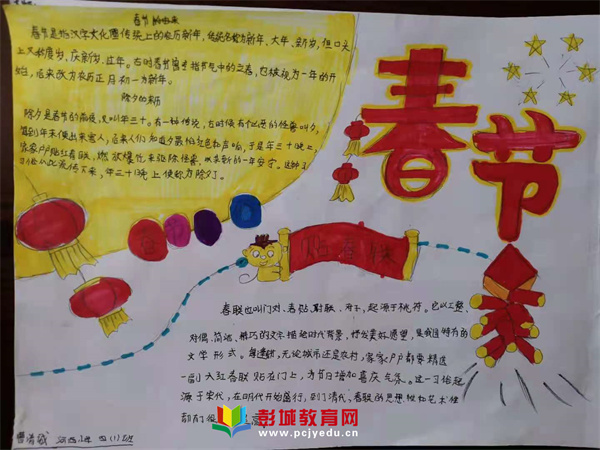 春节的由来
春节是指汉字文化圈传统上的农历新年,传统名称为新年、大年、新岁,但口头
上又称度岁、庆新岁、过年。古时春节曾专指节气中的立春,也被视为一年的开
始,后来改为农历正月初一为新年。
除夕的来历
除夕是春节的前夜,又叫年三十。有一种传说,古时候有个凶恶的怪兽叫夕,
到年末便出来害人,后来人们知道夕最怕红色和声响,于是年三十晚上,
家家户户贴红春联,燃放爆竹来驱除怪兽,以求新的一年安宁。这种
从此流传下来,年三十晚上便称为除夕了。
春节
贴春联
春联也叫门对、春贴、对联、对子,起源于桃符。它以工整、
对偶、简洁、精巧的文字描绘时代背景,抒发美好愿望,是我国特有的
文学形式。每逢春节,无论城市还是农村,家家户户都要精选
一副大红春联贴在门上,为节日增加喜庆气氛。这一习俗起
源于宋代,在明代开始盛行,到了清代,春联的思想性和艺术性
都有
四(1)班
彭城教育网
www.pcjyedu.cn